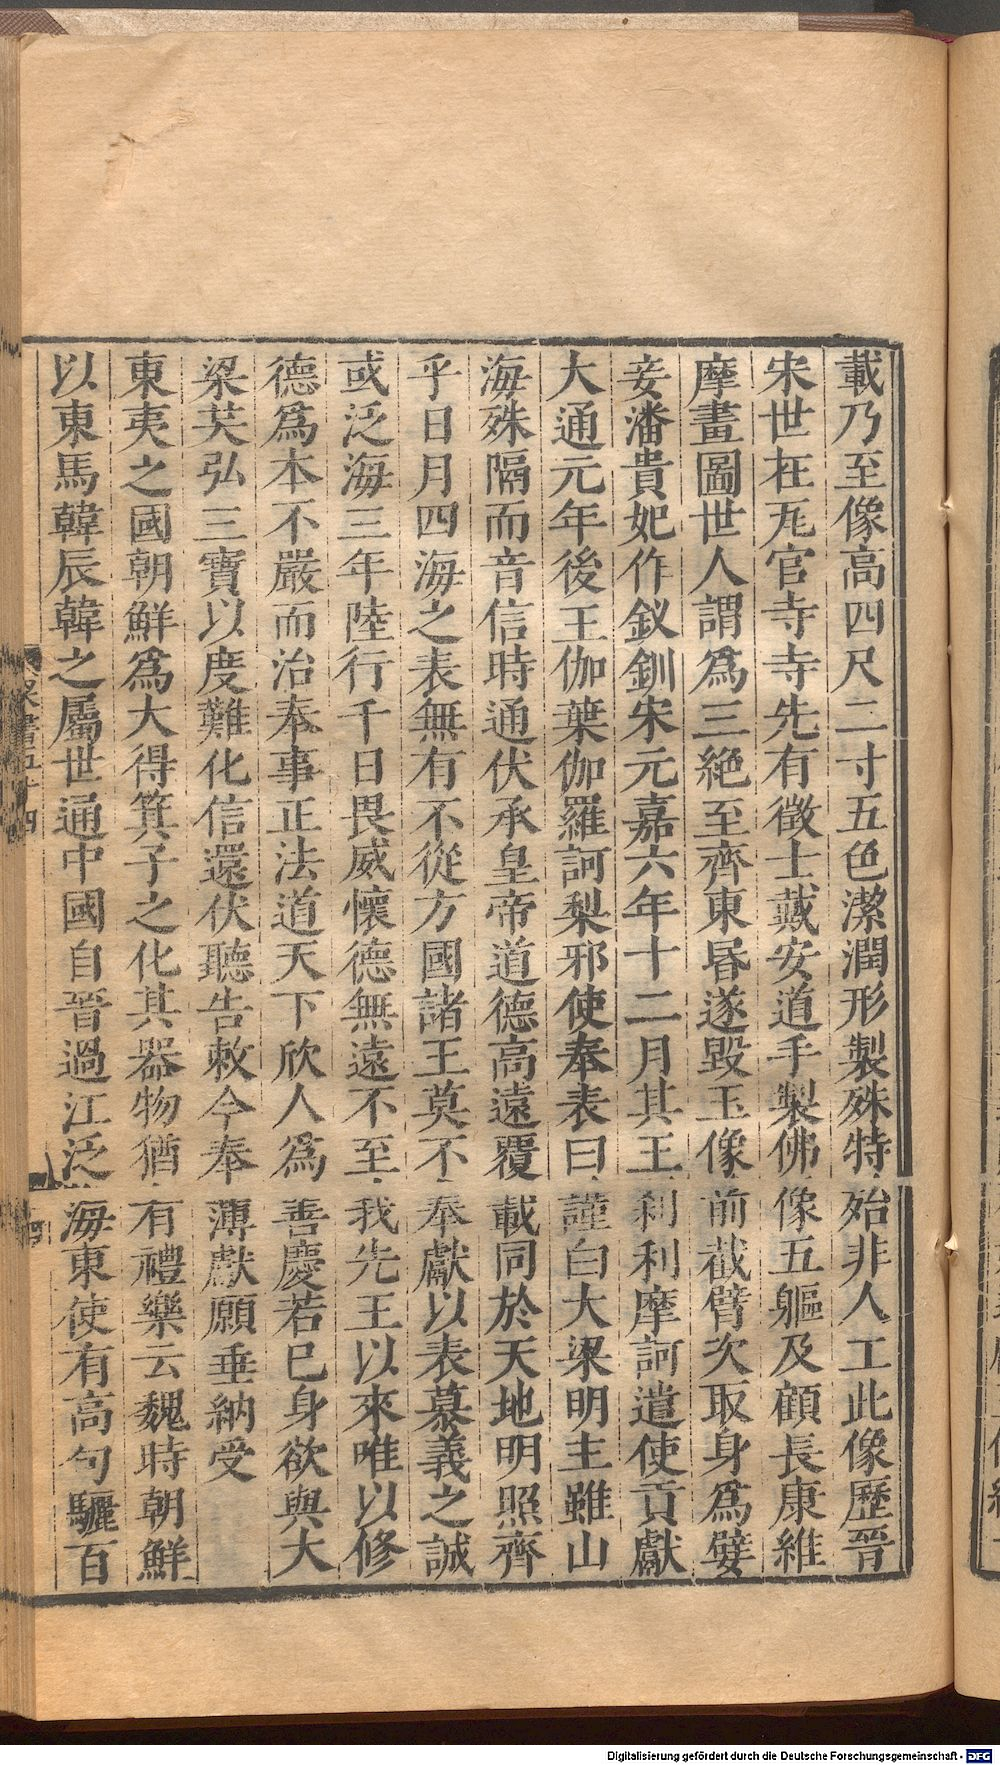 載乃至像高四尺二寸五色潔潤形製殊特始非人工此像歷晉
宋世在瓦官寺寺先有徵士戴安道手製佛像五軀及顧長康維
摩畫圖世人謂爲三絕至齊東昏遂毀玉像前截臂次取身爲嬖
妾潘貴妃作釵釧宋元嘉六年十二月其王刹利摩訶遣使貢獻
大通元年後王伽葉伽羅訶梨邪使奉表曰謹白大梁明主雖山
海殊隔而音信時通伏承皇帝道德高遠覆載同於天地明照齊
乎日月四海之表無有不從方國諸王莫不奉獻以表慕義之誠
或泛海三年陸行千日畏威懷德無遠不至我先王以來唯以修
德爲本不嚴而治奉事正法道天下欣人爲善慶若已身欲與大
梁共弘三寶以度難化信還伏聽告敕今奉薄獻願垂納受
東夷之國朝鮮爲大得箕子之化其器物猶有禮樂云魏時朝鮮
以東馬韓辰韓之屬世通中國自晉過江泛海東使有高句驪百
Digitalisierung gefördert durch die Deutsche Forschungsgemeinschaft - DFG